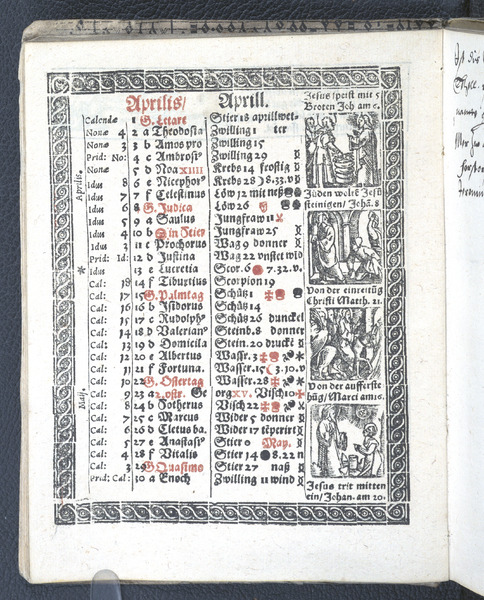 Aprilis/ Aprill.
Calendæ 1 G. Letare Stier 18 aprillwet-
Nonæ 4 2 a Theodosia Zwilling 1 ter
Nonæ 3 3 b Amos pro Zwilling 15
Prid: No: 4 c Ambrosi Zwilling 29
Nonæ 5 d Noa XIIII Krebs 14 frostig
Idus 8 6 e Nicephor Krebs 28 38.v
Idus 7 7 f Celestinus Löw 12 mit neß
Idus 6 8 G. Judica Löw 26
Idus 5 9 a Saulus Jungfraw 11
Idus 4 10 b Jungfraw 25
Idus 3 11 c Prochorus Wag 9 donner
Prid: Id: 12 d Justina Wag 22 vnstet wid
Idus 13 e Lucretia Scor. 6 7.32.v.
Cal: 18 14 f Tiburtius Scorpion 19
Cal: 17 15 G. Palmtag Schütz 1
Cal: 16 16 b Isidorus Schütz 14
Cal: 15 17 c Rudolph Schütz 26 dunckel
Cal: 14 18 d Valerian Steinb. 8 donner
Cal: 13 19 d Domicila Stein. 20 druckt
Cal: 12 20 e Albertus Wasser. 3
Cal: 11 21 f Fortuna. Wasser. 15 3.10.v
Cal: 10 22 G. Ostertag Wasser. 28
Cal: 9 23 a 2. ostr. Georg XV. Visch 10
Cal: 8 24 b Fotherus Visch 22
Cal: 7 25 c Marcus Wider 5 donner
Cal: 6 26 d Cletus ba. Wider 17 teperirt
Cal: 5 27 e Anastasi Stier 0 May.
Cal: 4 28 f Vitalis Stier 14 8.22 n
Cal: 3 29 G Quasimo Stier 27 naß
Prid: Cal: 30 a Enoch Zwilling 11 wind
Aprilis.
Maij.
Jesus speist mit 5
Broten Joh am 6.
Jüden wolte Jesu
steinigen / Joha. 8
Von der einreitüg
Christi Matth. 21.
Von der aufferste
hüg / Marci am 16.
Jesus trit mitten
ein / Johan. am 20.